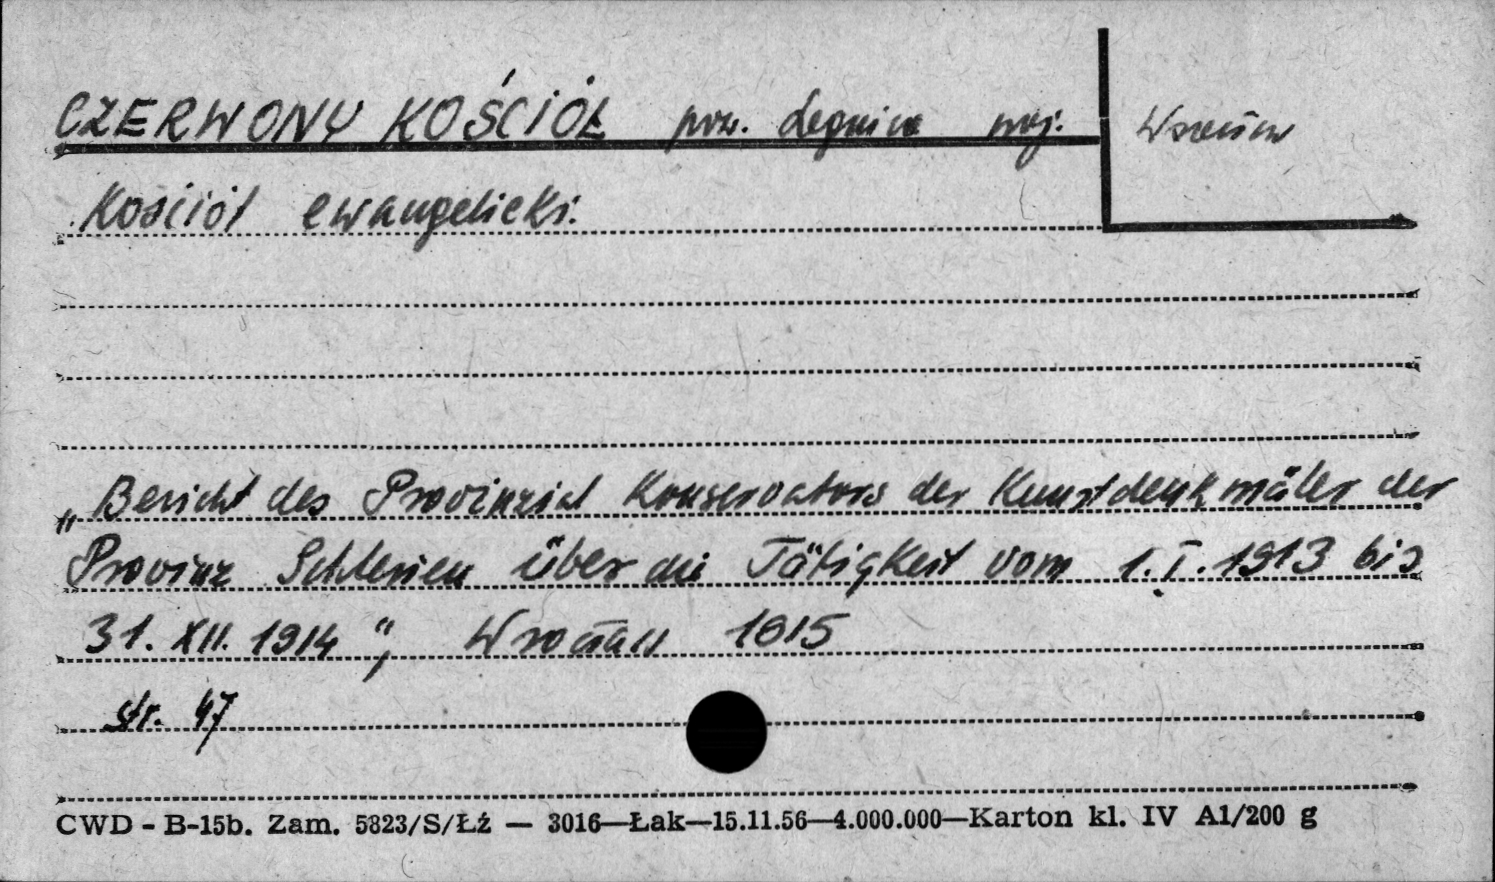 CZERWONY KOŚCIÓŁ pow. Legnica woj. Wrocław
Kościół ewangelicki.
„Bericht des Provinzial Konservators der Kunstdenkmäler der
Provinz Schlesien über die Tätigkeit vom 1.I.1913 bis
31. XII. 1914", Wrocław 1915
str. 47
CWD - B-15b. Zam. 5823/S/Łź — 3016—Łak—15.11.56—4.000.000—Karton kl. IV A1/200 g